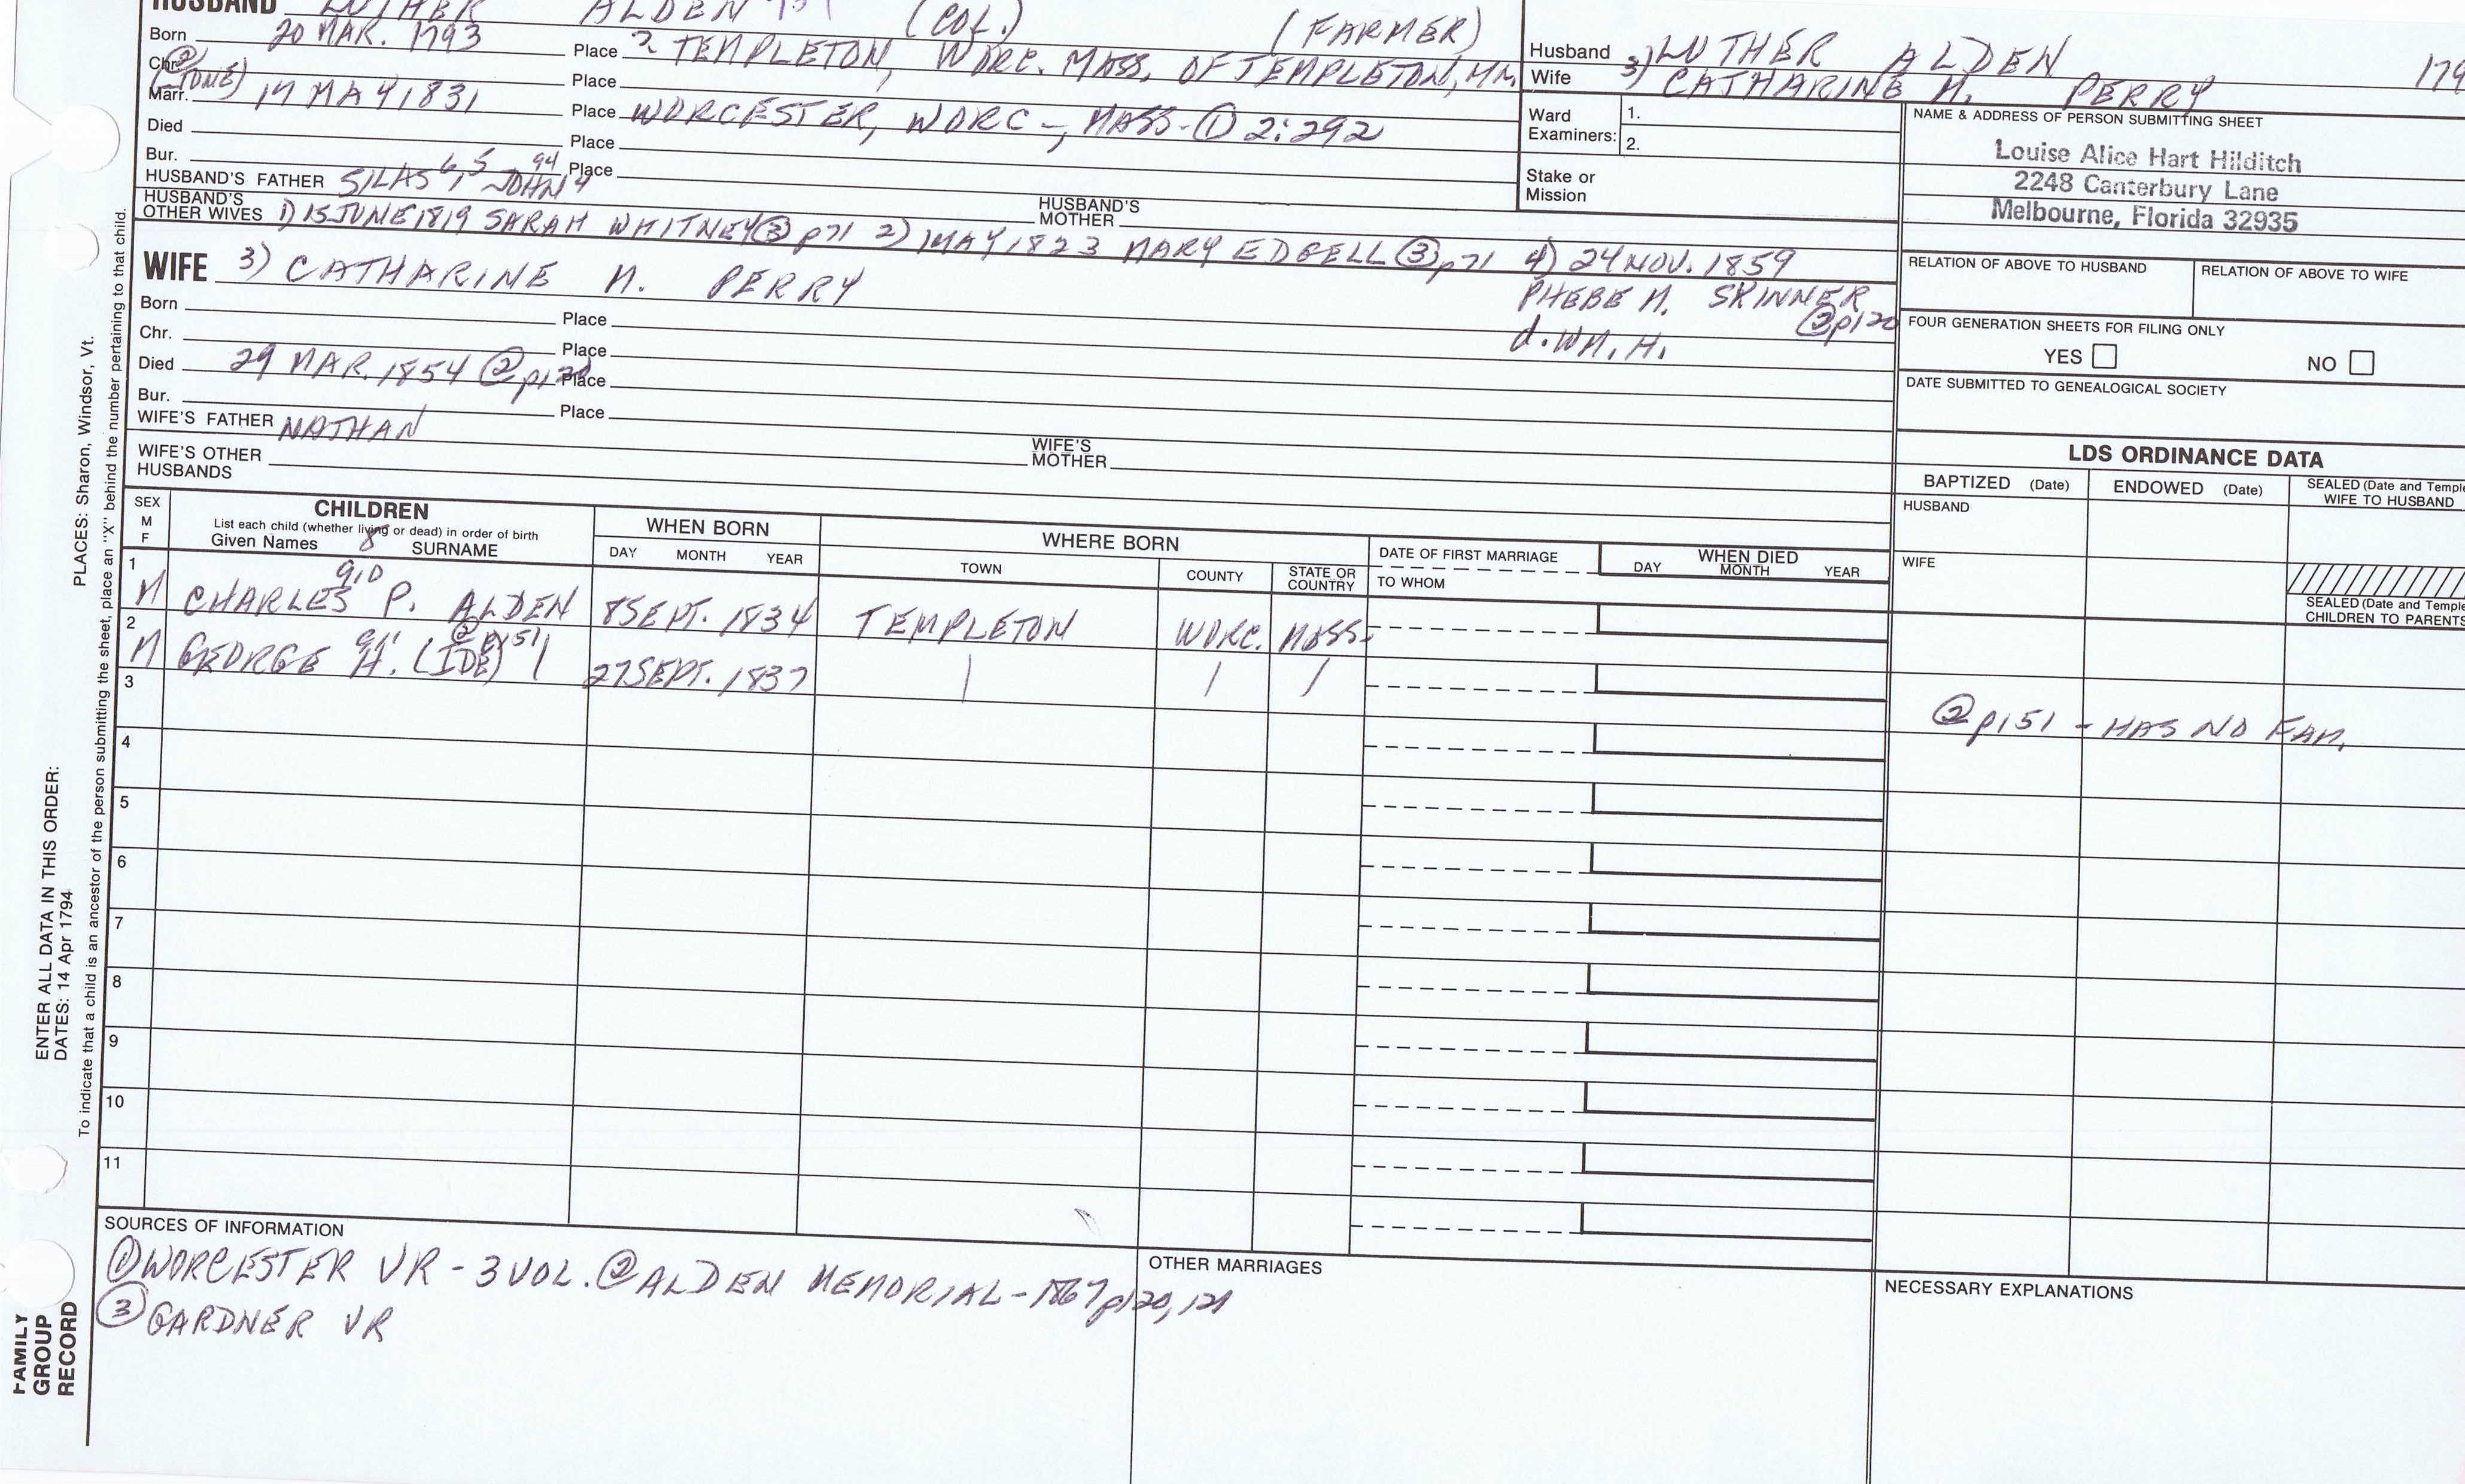 HUSBAND LUTHER ALDEN (COL.) (FARMER)
Born 20 MAR. 1793 Place TEMPLETON, WORC. MASS. OF TEMPLETON, MA
Chr. Place
Marr. 17 MAY 1831 Place WORCESTER, WORC-, MASS- ① 2:292
Died Place
Bur. Place
HUSBAND'S FATHER SILAS 6, 5 JOHN 4 94
HUSBAND'S MOTHER
HUSBAND'S OTHER WIVES 1) 15 JUNE 1819 SARAH WHITNEY ③ p71 2) 1 MAY 1823 MARY EDGELL ③ p71 4) 24 NOV. 1859
PHEBE M. SKINNER
② p120
d. WM. H.
WIFE 3) CATHARINE M. PERRY
Born Place
Chr. Place
Died 29 MAR. 1854 @ p120 Place
Bur. Place
WIFE'S FATHER NATHAN
WIFE'S MOTHER
WIFE'S OTHER HUSBANDS
Husband 3) LUTHER ALDEN 179
Wife 3) CATHARINE M. PERRY
Ward Examiners: 1.
2.
Stake or Mission
NAME & ADDRESS OF PERSON SUBMITTING SHEET
Louise Alice Hart Hilditch
2248 Canterbury Lane
Melbourne, Florida 32935
RELATION OF ABOVE TO HUSBAND RELATION OF ABOVE TO WIFE
FOUR GENERATION SHEETS FOR FILING ONLY
YES NO
DATE SUBMITTED TO GENEALOGICAL SOCIETY
LDS ORDINANCE DATA
BAPTIZED (Date) ENDOWED (Date) SEALED (Date and Temple
WIFE TO HUSBAND
HUSBAND
WIFE
SEALED (Date and Temple
CHILDREN TO PARENTS
SEX
M
F
CHILDREN
List each child (whether living or dead) in order of birth
Given Names 8 SURNAME
WHEN BORN
DAY MONTH YEAR
WHERE BORN
TOWN COUNTY STATE OR COUNTRY
DATE OF FIRST MARRIAGE
TO WHOM
WHEN DIED
DAY MONTH YEAR
1 M CHARLES P. ALDEN 8 SEPT. 1834 TEMPLETON WORC. MASS.
2 M GEORGE H. (IDE) @ p151 27 SEPT. 1837
② p151 - HAS NO FAM.
3
4
5
6
7
8
9
10
11
SOURCES OF INFORMATION
① WORCESTER VR - 3 VOL. ② ALDEN MEMORIAL - 1867 p120, 121
③ GARDNER VR
OTHER MARRIAGES
NECESSARY EXPLANATIONS
ENTER ALL DATA IN THIS ORDER:
DATES: 14 Apr 1794
PLACES: Sharon, Windsor, Vt.
To indicate that a child is an ancestor of the person submitting the sheet, place an "X" behind the number pertaining to that child.
FAMILY
GROUP
RECORD